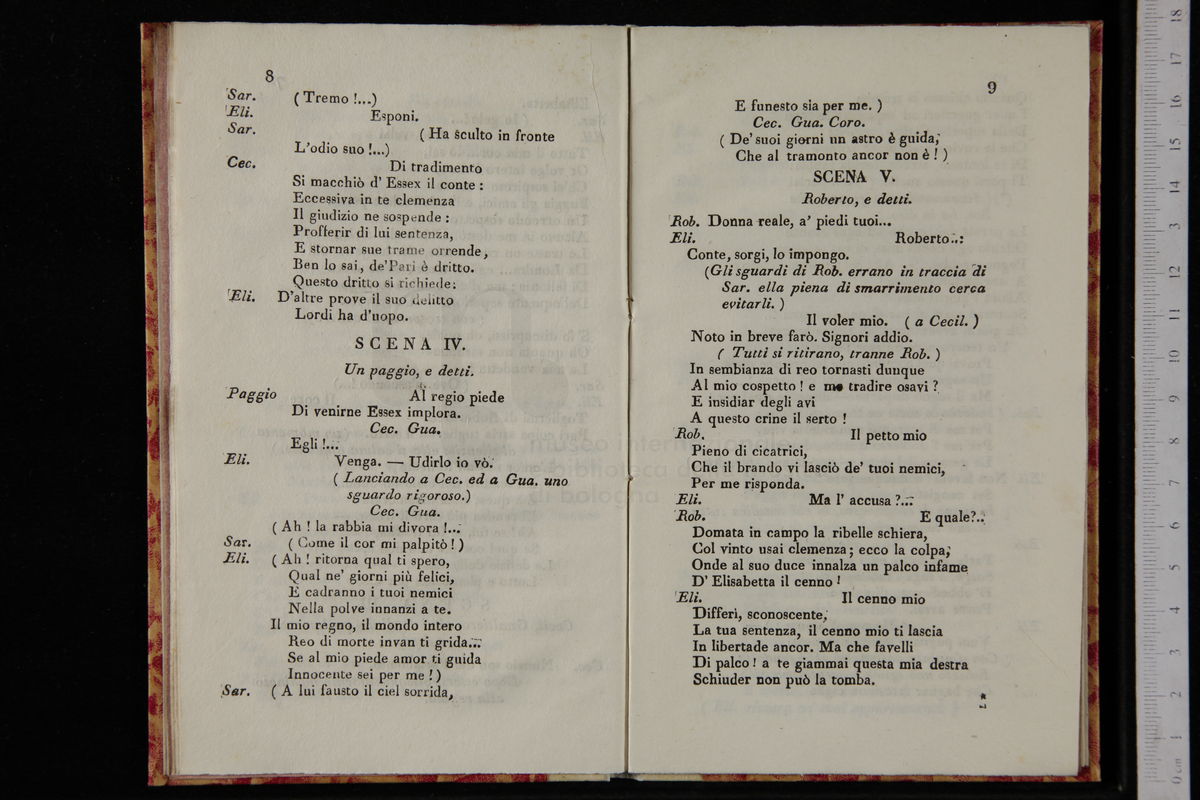 8
Sar. ( Tremo !...)
Eli. Esponi.
Sar. ( Ha sculto in fronte
L'odio suo !...)
Cec. Di tradimento
Si macchiò d' Essex il conte :
Eccessiva in te clemenza
Il giudizio ne sospende :
Profferir di lui sentenza,
E stornar sue trame orrende,
Ben lo sai, de'Pari è dritto.
Questo dritto si richiede:
Eli. D'altre prove il suo delitto
Lordi ha d'uopo.
SCENA IV.
Un paggio, e detti.
Paggio Al regio piede
Di venirne Essex implora.
Cec. Gua.
Egli !...
Eli. Venga. — Udirlo io vò.
( Lanciando a Cec. ed a Gua. uno
sguardo rigoroso.)
Cec. Gua.
( Ah ! la rabbia mi divora !...
Sar. ( Come il cor mi palpitò ! )
Eli. ( Ah ! ritorna qual ti spero,
Qual ne' giorni più felici,
E cadranno i tuoi nemici
Nella polve innanzi a te.
Il mio regno, il mondo intero
Reo di morte invan ti grida...
Se al mio piede amor ti guida
Innocente sei per me ! )
Sar. ( A lui fausto il ciel sorrida,
9
E funesto sia per me. )
Cec. Gua. Coro.
( De' suoi giorni un astro è guida,
Che al tramonto ancor non è ! )
SCENA V.
Roberto, e detti.
Rob. Donna reale, a' piedi tuoi...
Eli. Roberto..:
Conte, sorgi, lo impongo.
(Gli sguardi di Rob. errano in traccia di
Sar. ella piena di smarrimento cerca
evitarli. )
Il voler mio. ( a Cecil. )
Noto in breve farò. Signori addio.
( Tutti si ritirano, tranne Rob. )
In sembianza di reo tornasti dunque
Al mio cospetto ! e me tradire osavi ?
E insidiar degli avi
A questo crine il serto !
Rob. Il petto mio
Pieno di cicatrici,
Che il brando vi lasciò de' tuoi nemici,
Per me risponda.
Eli. Ma l' accusa ?...
Rob. E quale?..
Domata in campo la ribelle schiera,
Col vinto usai clemenza ; ecco la colpa,
Onde al suo duce innalza un palco infame
D' Elisabetta il cenno !
Eli. Il cenno mio
Differì, sconoscente,
La tua sentenza, il cenno mio ti lascia
In libertade ancor. Ma che favelli
Di palco ! a te giammai questa mia destra
Schiuder non può la tomba.
*
museo internazionale
biblioteca d
di bologna
0 cm 1 2 3 4 5 6 7 8 9 10 11 12 13 14 15 16 17 18